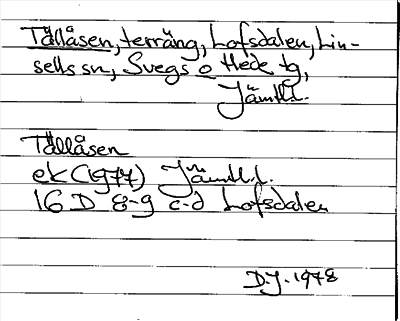 Tälläsen, terräng, Lofsdalen, Lin-
sells sn, Svegs o Hede tg,
Jämtl.
Tälläsen
ek (1977) Jämtl.l.
16 D 8-9 c-d Lofsdalen
D.J. 1978